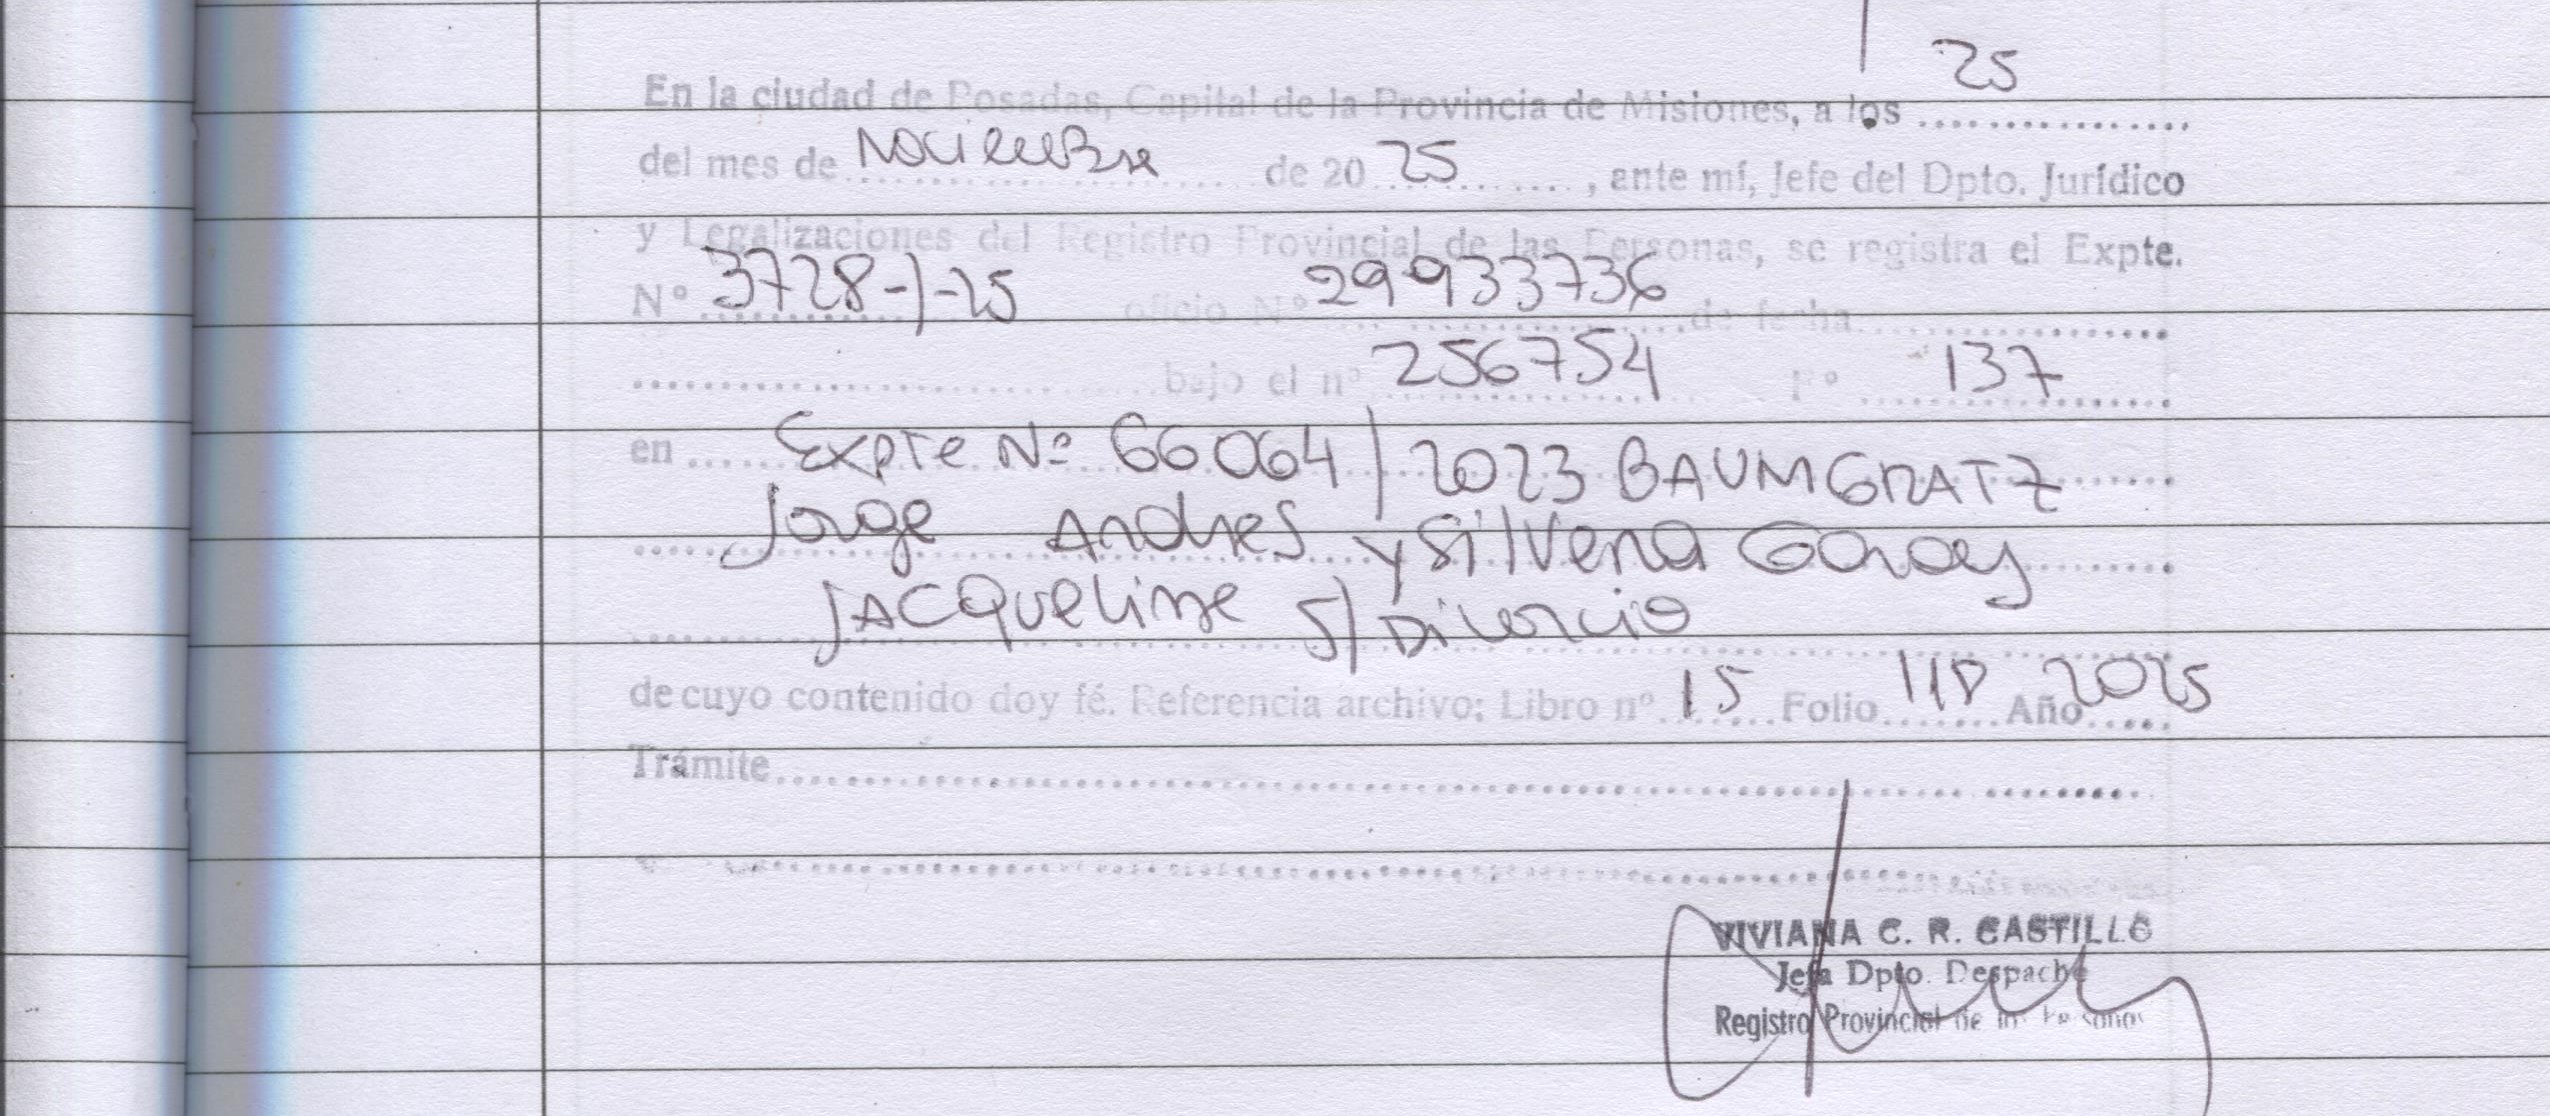 En la ciudad de Posadas, Capital de la Provincia de Misiones, a los 25
del mes de Noviembre de 20 25, ante mí, Jefe del Dpto. Jurídico
y Legalizaciones del Registro Provincial de las Personas, se registra el Expte.
Nº 3728-J-25 oficio Nº 29933736 de fecha
bajo el nº 256754 Fº 137
en Expte Nº 66064/2023 BAUMGRATZ
Jorge Andres y Silvena Garay
JACQueline S/ Divorcio
de cuyo contenido doy fé. Referencia archivo; Libro nº 15 Folio Año 2025
Trámite
VIVIANA C. R. CASTILLO
Jefa Dpto. Despacho
Registro Provincial de las Personas